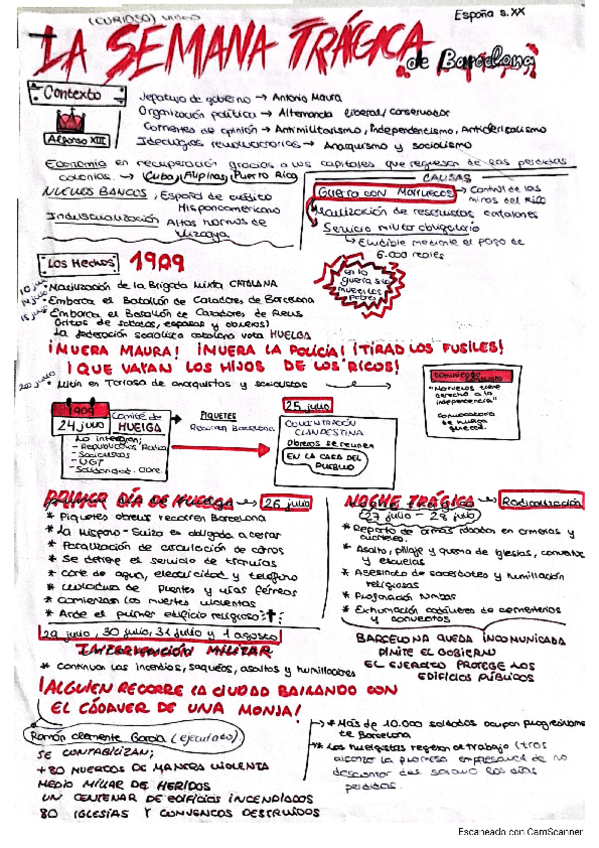 (CURIOSO) VIDEO
España s.XX
LA SEMANA TRÁGICA de Barcelona
Contexto
Alfonso XIII
Jefatura de gobierno → Antonio Maura
Organización política → Alternancia liberal/conservador
Corrientes de opinión → Antimilitarismo, independentismo, Anticlericalismo
Ideologías revolucionarias → Anarquismo y socialismo
Economía en recuperación gracias a los capitales que regresan de las perdidas
colonias. → Cuba, Filipinas, Puerto Rico
NUEVOS BANCOS, Español de crédito
Hispanoamericano
Industrialización Altos hornos de
Vizcaya
CAUSAS
Guerra con Marruecos → Control de las
minas del Rif
Movilización de reservistas catalanes
Servicio militar obligatorio
↳ Eludible mediante el pago de
6.000 reales
Los Hechos 1909
10 julio * Movilización de la Brigada Mixta CATALANA
14 julio * Embarca el Batallón de Cazadores de Barcelona
18 julio * Embarca el Batallón de Cazadores de Reus
(Gritos de soldados, esposas y obreros)
La federación socialista catalana vota HUELGA
¡MUERA MAURA! ¡MUERA LA POLICÍA! ¡TIRAD LOS FUSILES!
¡QUE VAYAN LOS HIJOS DE LOS RICOS!
* Mitin en Terrassa de anarquistas y socialistas
"Marruecos tiene
derecho a la
independencia"
Convocatoria
de huelga
general.
1909
24 julio
Comité de
HUELGA
Lo integran;
- Socialistas
- UGT
- Solidaridad. Obre.
PIQUETES
Recorren Barcelona
25 julio
CONCENTRACIÓN
CLANDESTINA
Obreros se reunen
EN LA CASA DEL
PUEBLO
PRIMER DÍA DE HUELGA → 26 julio
* Piquetes obreros recorren Barcelona
* La Hispano-Suiza es obligada a cerrar
* Paralización de circulación de carros
* Se detiene el servicio de tranvías
* Corte de agua, electricidad y teléfono
* Voladura de puentes y vías férreas
* Comienzan las muertes violentas
* Arde el primer edificio religioso
NOCHE TRÁGICA → Radicalización
(27 julio - 28 julio)
* Reparto de armas robadas en armerías y
cuarteles.
* Asalto, pillaje y quema de iglesias, conventos
y escuelas
* Asesinato de sacerdotes y humillación
religiosas
* Profanación tumbas
* Exhumación cadáveres de cementerios
y conventos
BARCELONA QUEDA INCOMUNICADA
DIMITE EL GOBIERNO
EL EJERCITO PROTEGE LOS
EDIFICIOS PÚBLICOS
29 julio, 30 julio, 31 julio y 1 agosto
INTERVENCIÓN MILITAR
* Continuan los incendios, saqueos, asaltos y humillaciones
¡ALGUIEN RECORRE LA CIUDAD BAILANDO CON
EL CÁDAVER DE UNA MONJA!
Ramón Clemente García (ejecutado).
SE CONTABILIZAN;
+80 MUERTOS DE MANERA VIOLENTA
MEDIO MILLAR DE HERIDOS
UN CENTENAR DE EDIFICIOS INCENDIADOS
80 IGLESIAS Y CONVENTOS DESTRUÍDOS
* Más de 10.000 soldados ocupan
de Barcelona
* Los huelguistas regresan al trabajo (tras
alcanzar la promesa empresarial de no
descontar del salario los días
perdidos.
Escaneado con CamScanner